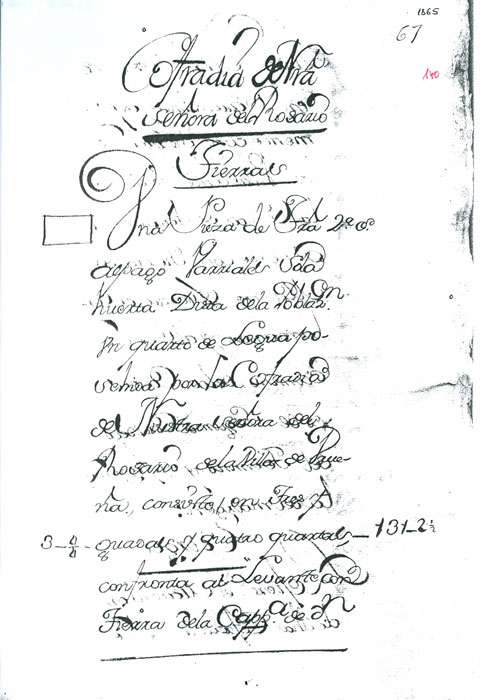 1865
67
140
Cofradia de Nrâ
señora del Rosario
Tierras
Una Pieza de Trâ 2ª o
al pago Parrales sola
huerta Dista dela Poblaz.on
Un quarto de Legua po-
vehida por la Cofradia
de Nuestra señora del
Rosario de la Villa de
ña, consiste en Tres
3-4/4 quadas y quatro quartals 131-2½
confronta al Levante con
Tierra dela Capp.a de